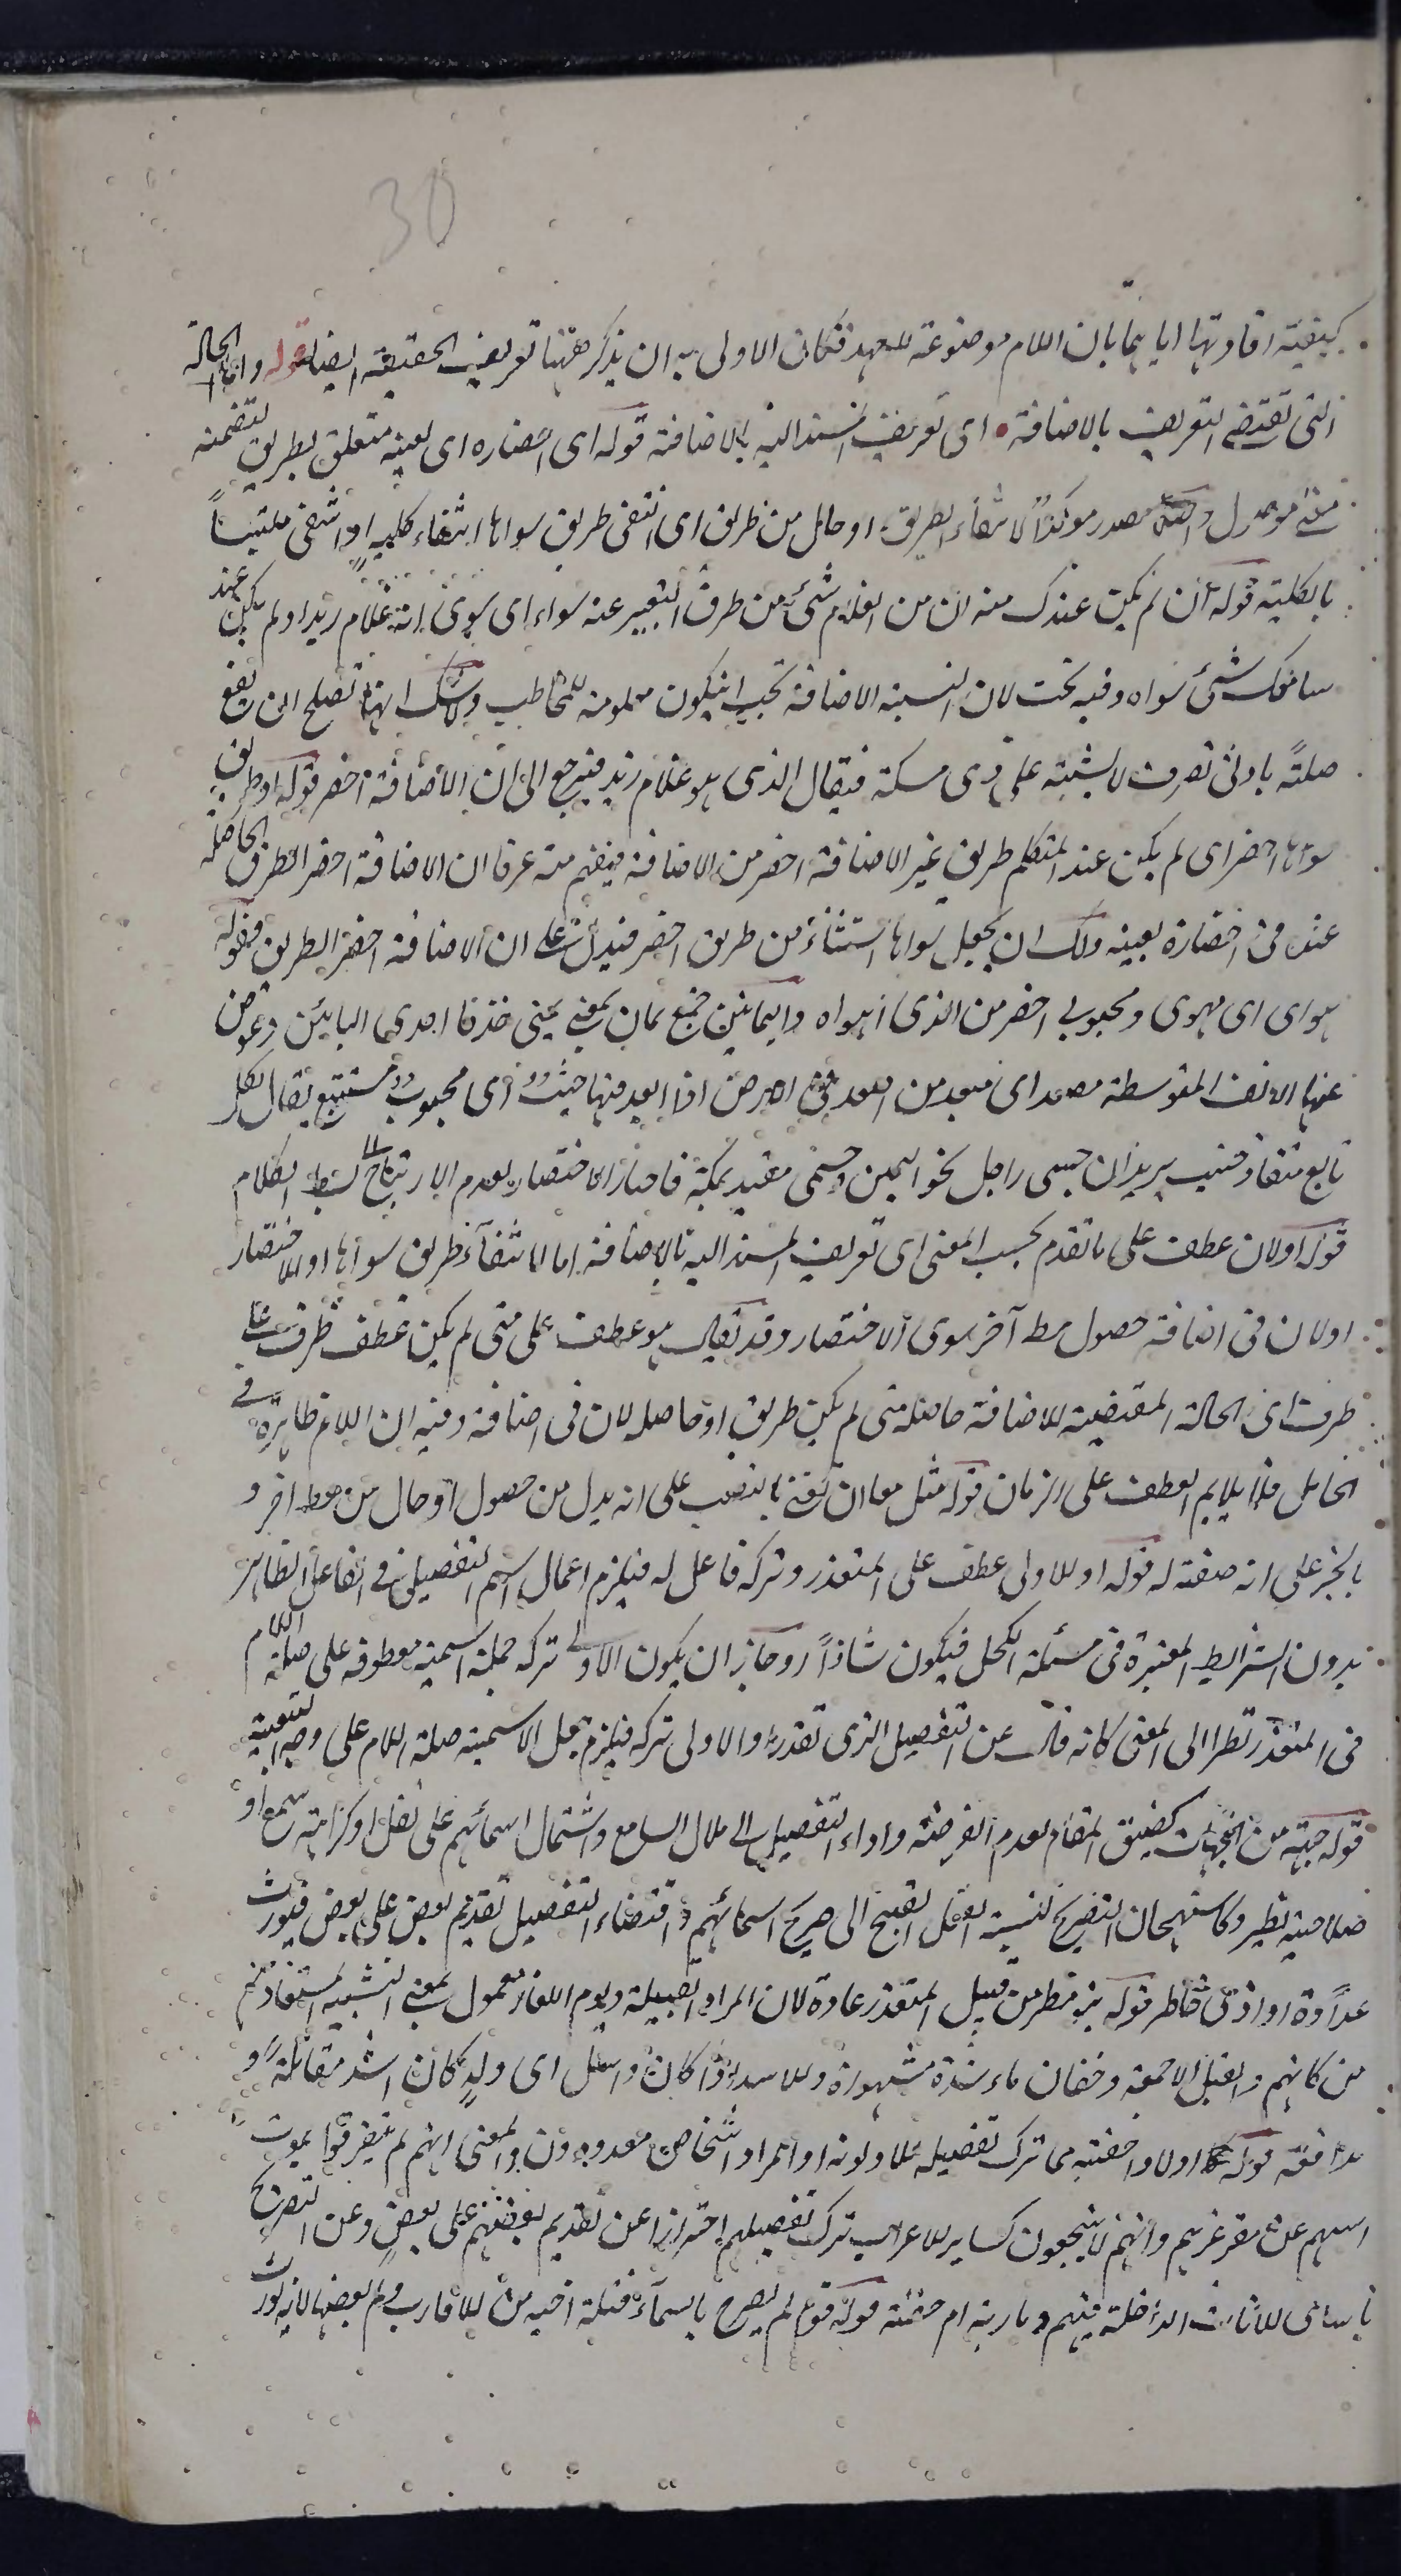 30
كيفية افادتها اياهما بان اللام موضوعة للعهد فكان الاولى به ان يذكر ههنا تعريف الحقيقة ايضا قوله واما الحالة
التى تقتضى التعريف بالاضافة اى تعريف المسند اليه بالاضافة قوله اى احضاره اى بعينه متعلق بطريق لتضمنه
معنى موصول مصدر موكدا لانتفاء الطريق او حال من طريق اى انتفى طريق سواها انتفاء كلية او انتفى ملتبسا
بالكلية قوله ان لم يكن عندك منه ان من الغلام شئ من طرق التعبير عنه سواه اى سوى انه غلام زيد او لم يكن عند
سامعك شئ سواه وفيه بحث لان النسبة الاضافة يجب ان يكون معلومة للمخاطب ولا شك انها تصلح ان يقع
صلة بادنى تصرف لا يشتبه على ذى مسكة فيقال الذى هو غلام زيد فيرجع الى ان الاضافة اخصر قوله او طريق
سواها اخصر اى لم يكن عند المتكلم طريق غير الاضافة اخصر من الاضافة فيفهم منه عرفا ان الاضافة اخصر الطرق الحاصلة
عنده فى احضاره بعينه ولك ان يجعل سواها استثناء من طريق اخصر فيدل على ان الاضافة اخصر الطريق فقوله
هواى اى مهوى ومحبوبى اخصر من الذى اهواه واليمانين جمع يمان بمعنى يمنى حذفا احدى اليائين وعوض
عنها الالف المتوسطة مصعد اى مبعد من اصعد فى الارض اذا ابعد فيها جنيب اى مجنوب مستتبع يقال لكل
تابع منقاد جنيب يريد ان حبيبى راحل نحو اليمن وجسمى مقيد بمكة فاختار الاختصار لعدم الارتياح الى بسط الكلام
قوله او لان عطف على ما تقدم بحسب المعنى اى تعريف المسند اليه بالاضافة اما لانتفاء طريق سواها او للاختصار
او لان فى اضافة حصول مط آخر سوى الاختصار وقد يقال هو عطف على متى لم يكن عطف ظرف على
ظرف اى الحالة المقتضية للاضافة حاصلة متى لم يكن طريق او حاصله لان فى اضافة وفيه ان اللام ظاهرة فى
الحامل فلا يلايم العطف على الزمان قوله مثل ما ان تغنى بالنصب على انه بدل من حصول او حال من مط اخر و
بالجر على انه صفة له قوله او للاولى عطف على المتعذر وتركه فاعل له فيلزم اعمال اسم التفضيل فى الفاعل الظاهر
بدون الشرايط المعتبرة فى مسئلة الكحل فيكون شاذا وجاز ان يكون الاولى تركه جملة اسمية معطوفة على صلة اللام
فى المتعذر نظرا الى المعنى كانه قال عن التفصيل الذى تعذر او الاولى تركه فيلزم جعل الاسمية صلة اللام على وجه التبعية
قوله جهة من الجهات كضيق المقام لعدم الفرصة واداء التفصيل الى ملال السامع واشتمال اسمائهم على ثقل او كراهة سمع او
صلاحية تطير وكاستهجان التصريح لنسبة الفعل القبيح الى صريح اسمائهم واقتضاء التفصيل تقديم بعض على بعض فيورث
عداوة او اذى خاطر قوله بنو مطر من قبيل المتعذر عادة لان المراد القبيلة ويوم اللقاء معمول بمعنى التشبيه المستفاد
من كانهم والغيل الاجمة وخفان ماسدة مشهورة وللاسد اذا كان واشبل اى ولد كان اشد مقاتلة و
مدافعة قوله اولاد جفنة مما ترك تفصيله للاولوية او المراد اشخاص معدودون والمعنى انهم لم يتفرقوا بموت
ابيهم عن مقر عزهم وانهم لا ينتجعون كساير للاعراب ترك تفصيلهم احترازا عن تقديم بعضهم على بعض وعن التصريح
باسامى للاناث الداخلة فيهم ومارية ام جفنة قوله قومى لم يصرح باسماء قتلة اخيه من للاقارب لانه يورث